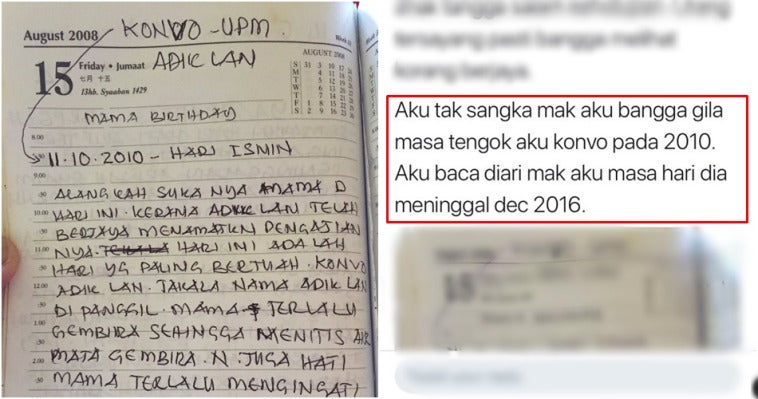 August 2008
KONVO - UPM.
ADIK LAN
15
Friday • Jumaat
七月 十五
13hb. Syaaban 1429
AUGUST 2008
S 31 3 10 17
M 4 11 18
T 5 12 19
W 6 13 20
T 7 14 21
F 1 8 15 22
S 2 9 16 23
MAMA BIRTHDAY
8.00
11.10.2010 - HARI ISNIN
9.00
ALANGKAH SUKA NYA MAMA D
10.00 HARI INI. KERANA ADIK LAN TELAH
BERJAYA MENAMATKN PENGAJIAN
11.00 NYA. HARI INI ADA LAH
HARI YG PALING BERTUAH. KONVO
12.00 ADIK LAN. TAKALA NAMA ADIK LAN
DI PANGGIL. MAMA TERLALU
1.00 GEMBIRA SEHINGGA MENITIS AIR
2.00 MATA GEMBIRA. N. JUGA HATI
MAMA TERLALU MENGINGATI
Aku tak sangka mak aku bangga gila
masa tengok aku konvo pada 2010.
Aku baca diari mak aku masa hari dia
meninggal dec 2016.